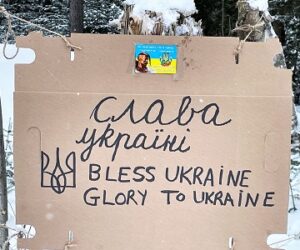 слава
україні
BLESS UKRAINE
GLORY TO UKRAINE